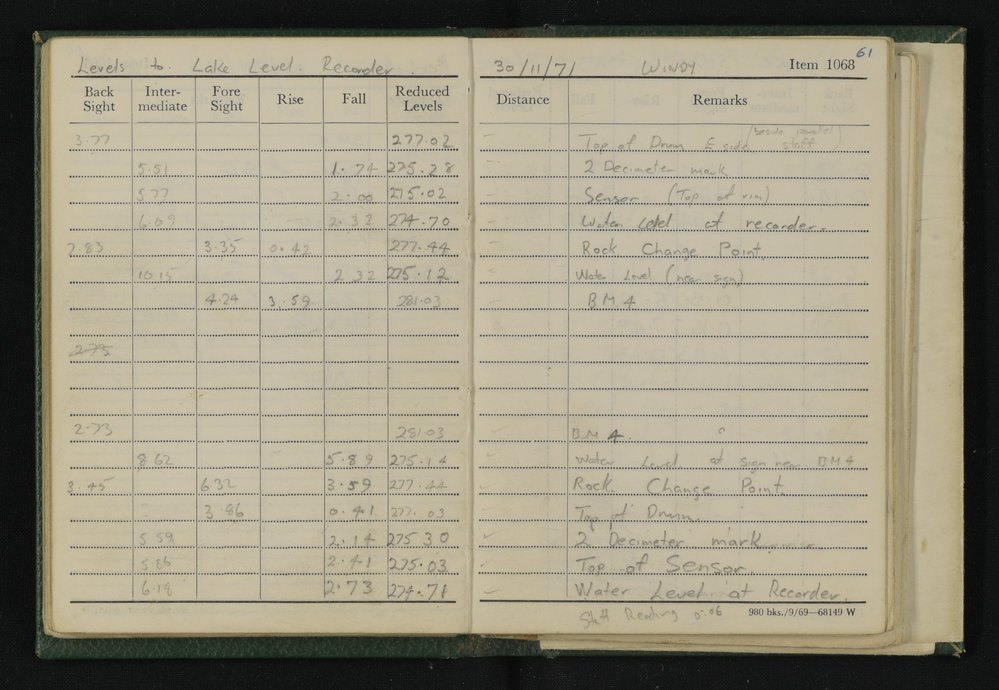 61
Levels to Lake Level Recorder. 30/11/71 WINDY Item 1068
Back Sight Inter-mediate Fore Sight Rise Fall Reduced Levels Distance Remarks
3.77 277.02 Top of Drum E side (beside parallel staff)
5.51 1.74 275.28 2 Decimeter mark
5.77 2.00 275.02 Sensor (Top of rim)
6.09 2.32 274.70 Water Level at recorder.
7.83 3.35 0.42 277.44 Rock Change Point.
10.15 2 32 275.12 Water Level (near sign)
4.24 3.59 281.03 BM 4
2.73
2.73 281.03 BM 4.
8 62 5.89 275.14 Water Level at sign near BM4
3.45 6.32 3.59 277.44 Rock Change Point.
3.86 0.41 277.03 Top of Drum.
5 59 2.14 275 30 2 Decimeter mark
5.86 2.41 275.03 Top of Sensor
6.18 2.73 274.71 Water Level at Recorder.
Staff Reading 0.06 980 bks./9/69—68149 W